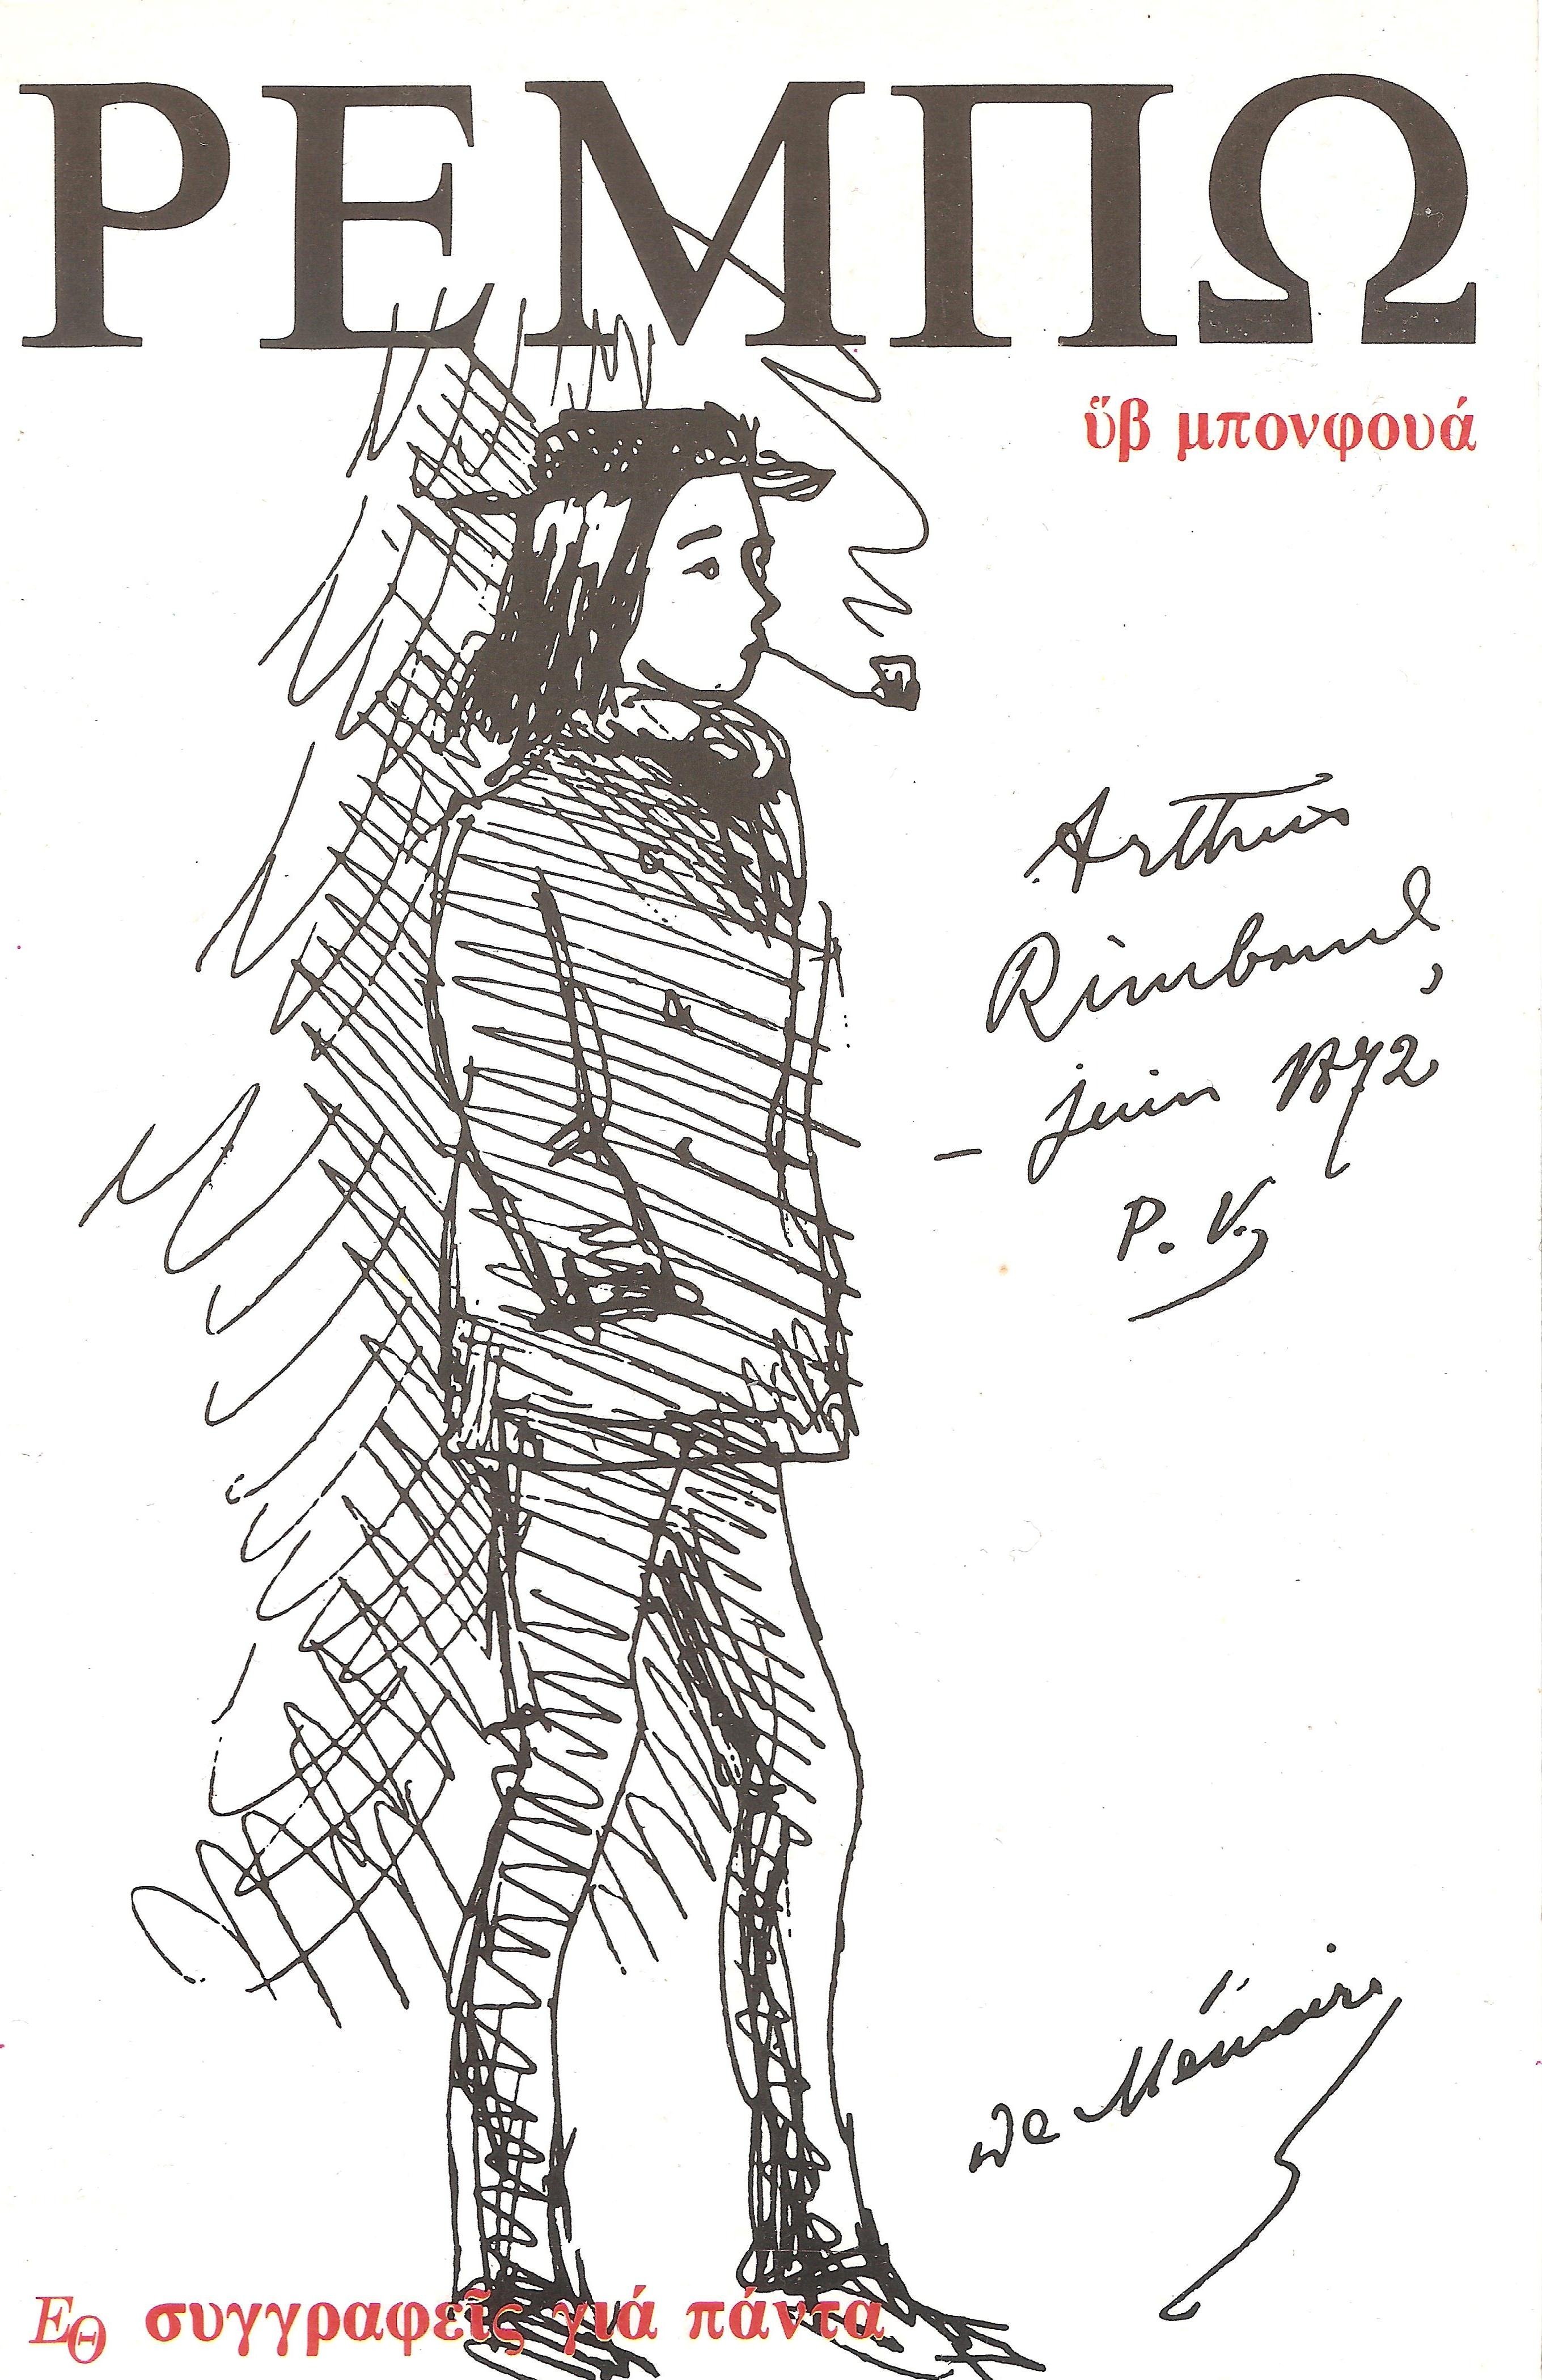 ΡΕΜΠΩ
ὕβ μπονφουά
Arthur
Rimbaud,
– juin 1872
P. V.
De Mémoire
ΕΘ συγγραφεῖς γιά πάντα